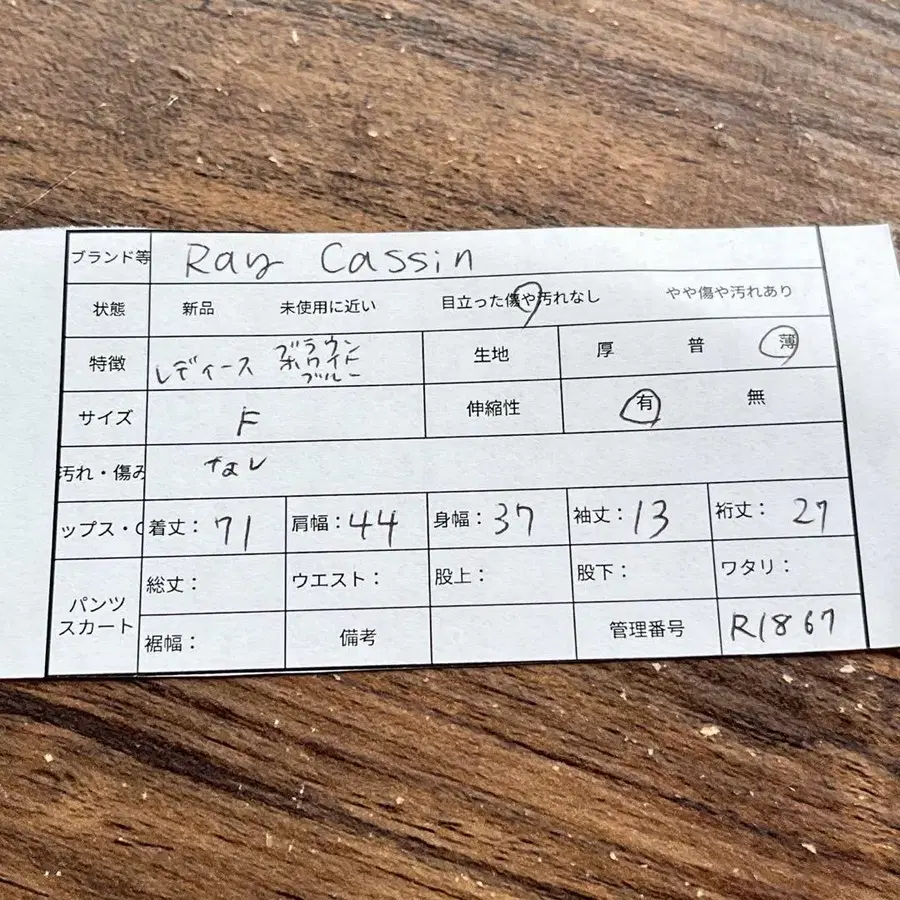 ブランド等 Ray Cassin
状態 新品 未使用に近い 目立った傷や汚れなし やや傷や汚れあり
特徴 レディース ブラウン ホワイト ブルー 生地 厚 普 薄
サイズ F 伸縮性 有 無
汚れ・傷み なし
ップス・ 着丈: 71 肩幅: 44 身幅: 37 袖丈: 13 裄丈: 27
パンツ スカート 総丈: ウエスト: 股上: 股下: ワタリ:
裾幅: 備考 管理番号 R1867